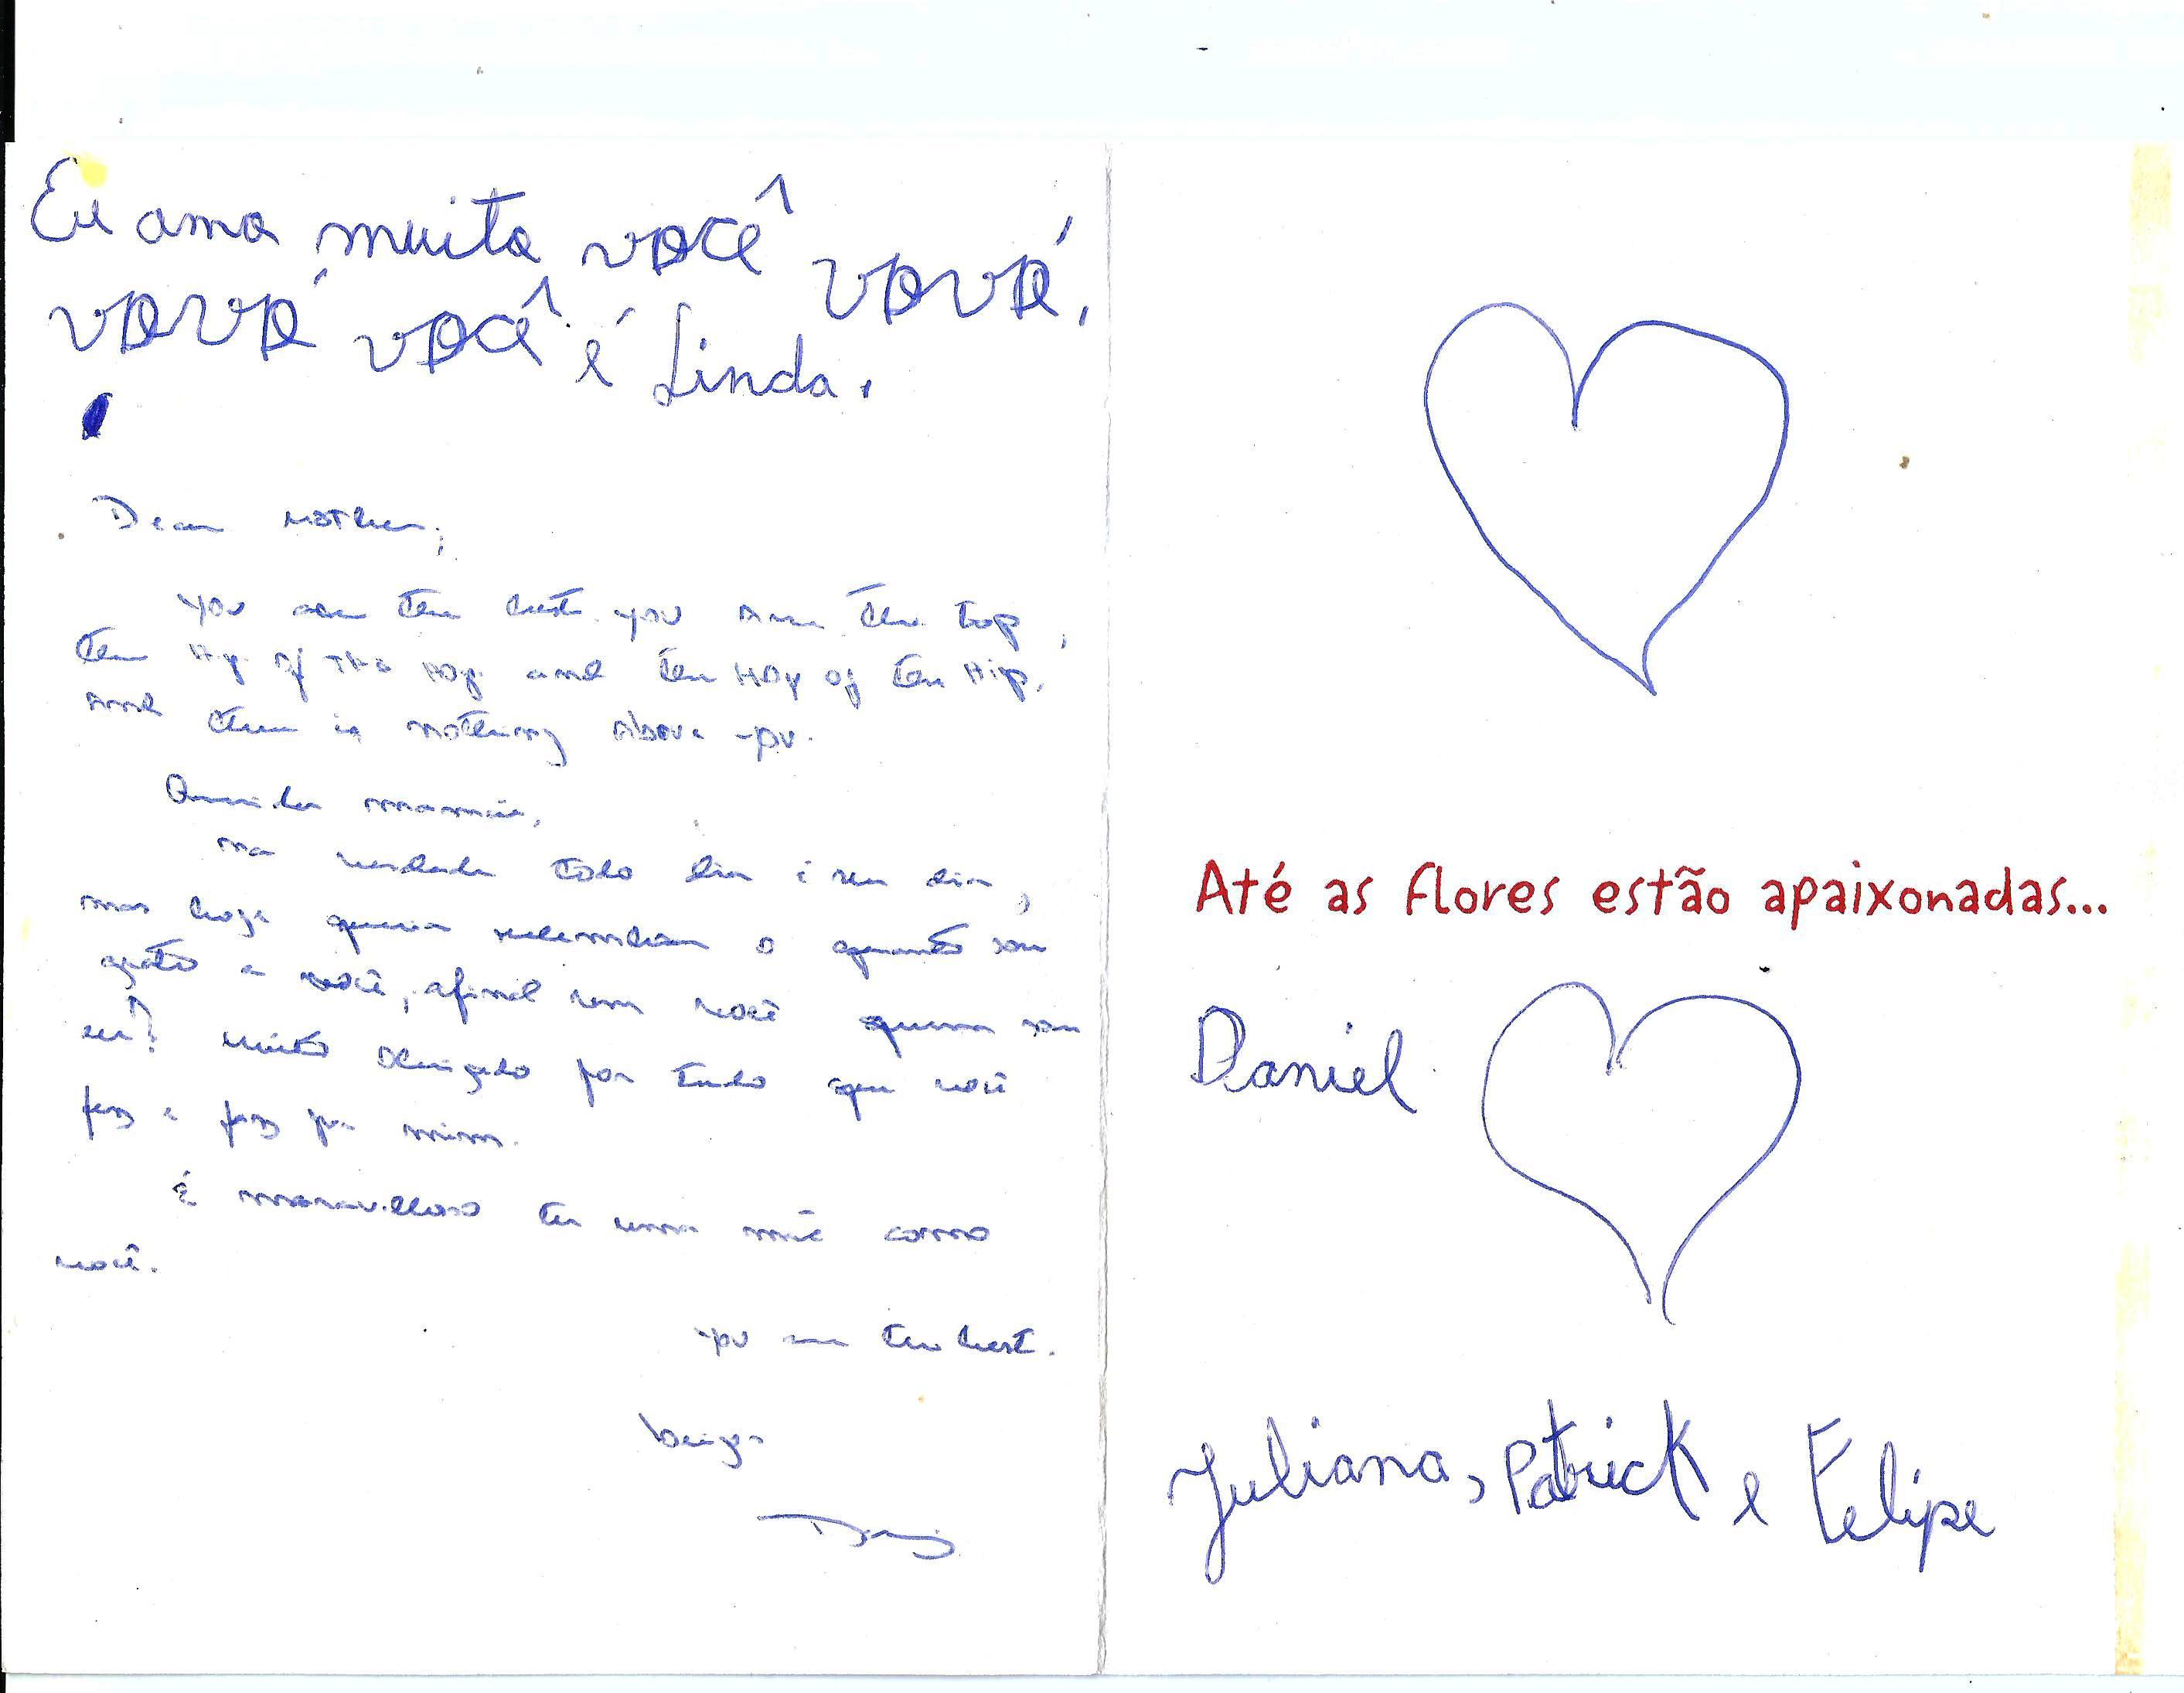 Eu amo muito você vovó,
vovó você é Linda.
Dear Mother,
you are the best. you are the top,
the of the top and the top of the
and there is nothing above you.
Querida mamãe,
na verdade todo dia é seu dia,
mas hoje queria relembrar o quanto sou
grato a você, afinal sem você quem sou
eu? Muito obrigado por tudo que você
fez e faz por mim.
É maravilhoso ter uma mãe como
você.
you are the best.
beijos
Até as flores estão apaixonadas...
Daniel
Juliana, Patrick e Felipe